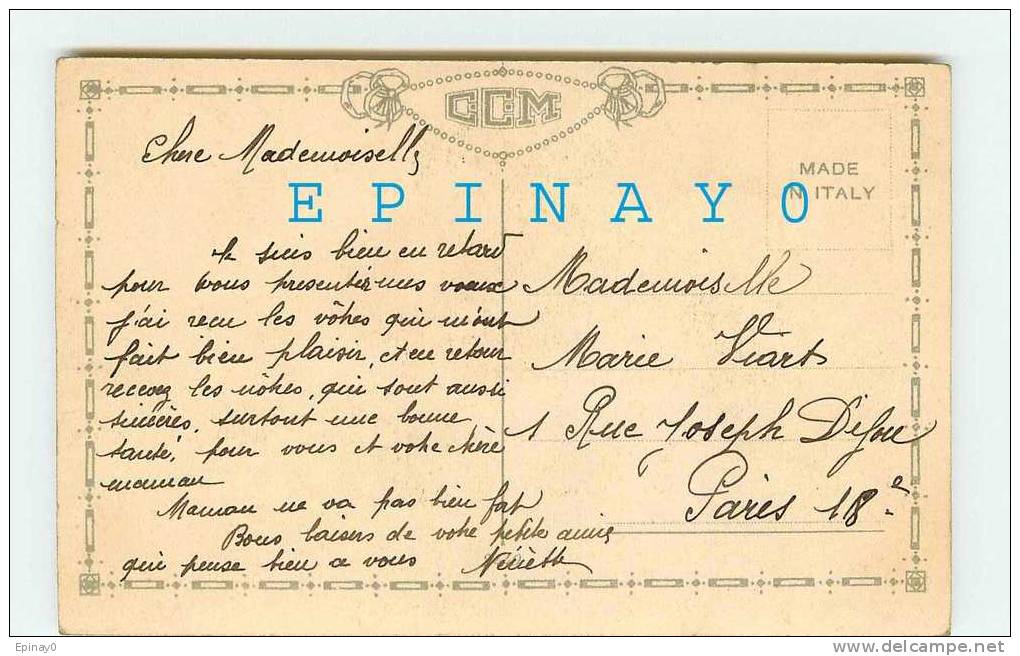 CCM
Chere Mademoiselle
MADE
IN ITALY
E P I N A Y 0
Je suis bien en retard
pour vous presenter mes voeux
j'ai recu les vôtres qui m'ont
fait bien plaisir, et en retour
recevez les nôtres, qui sont aussi
sincéres, surtout une bonne
santé, pour vous et votre chère
maman
Maman ne va pas bien fort
Bons baisers de votre petite amie
qui pense bien a vous Nénette
Mademoiselle
Marie Viart
1 Rue Joseph Dijon
Paris 18e
Epinay0
delcampe.net